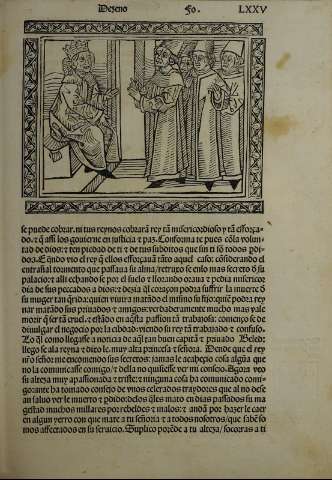 Dezeno Fo. LXXV
se puede cobrar. ni tus reynos cobrarã rey tã misericordioso y tã esforça-
do. τ q̃ assi los gouierne en justicia τ paz. Conforma te pues cõla volun-
tad de dios: τ ten piedad de ti τ de tus subditos que sin ti sõ todos
dos. Equãdo vio el rey q̃ ellos esforçauã tãto aquel caso: cõsiderando el
entrañal tormento que passaua su alma/retruxo se enlo mas secreto ð su
palacio: τ alli echando se por el suelo τ llorando oraua τ pedia misericor
dia de sus peccados a dios: τ dezia q̃l coraçon podra suffrir la muerte ð
su muger tan q̃rida: quien viuira matãdo el mismo su fijo: quiẽ podra rey
nar matãdo sus priuados τ amigos: verdaderamente mucho mas vale
morir q̃ ser tã cruel. τ estãdo en aq̃sta passiõ tã trabaiosa: començo se de
diuulgar el negocio por la cibdad: viendo su rey tã trabaiado τ confuso.
Lo q̃l como llegasse a noticia de aq̃l tan buen capitã τ priuado Beled:
llego se ala reyna τ dixo le. muy alta princesa τ señora. Dende que el rey
mi señor me encomendo sus secretos: iamas le acabeçio cosa algũa que
no la comunicasse comigo/τ della no quisiesse ver mi consejo. Agora veo
su alteza muy apassionada τ triste: τ ninguna cosa ha comunicado comi
go: ante ha tomado consejo de vnos celerados traydores que al no dese
an saluo ver le muerto τ pdido: delos q̃les mato en dias passados su ma
gestad muchos millares por rebeldes τ malos: τ andã por hazer le caer
en algun yerro con que mate a tu señoria τ a todos nosotros/que sabẽ so
mos affectados en su seruicio. Suplico porẽde a tu alteza/socorras a ti